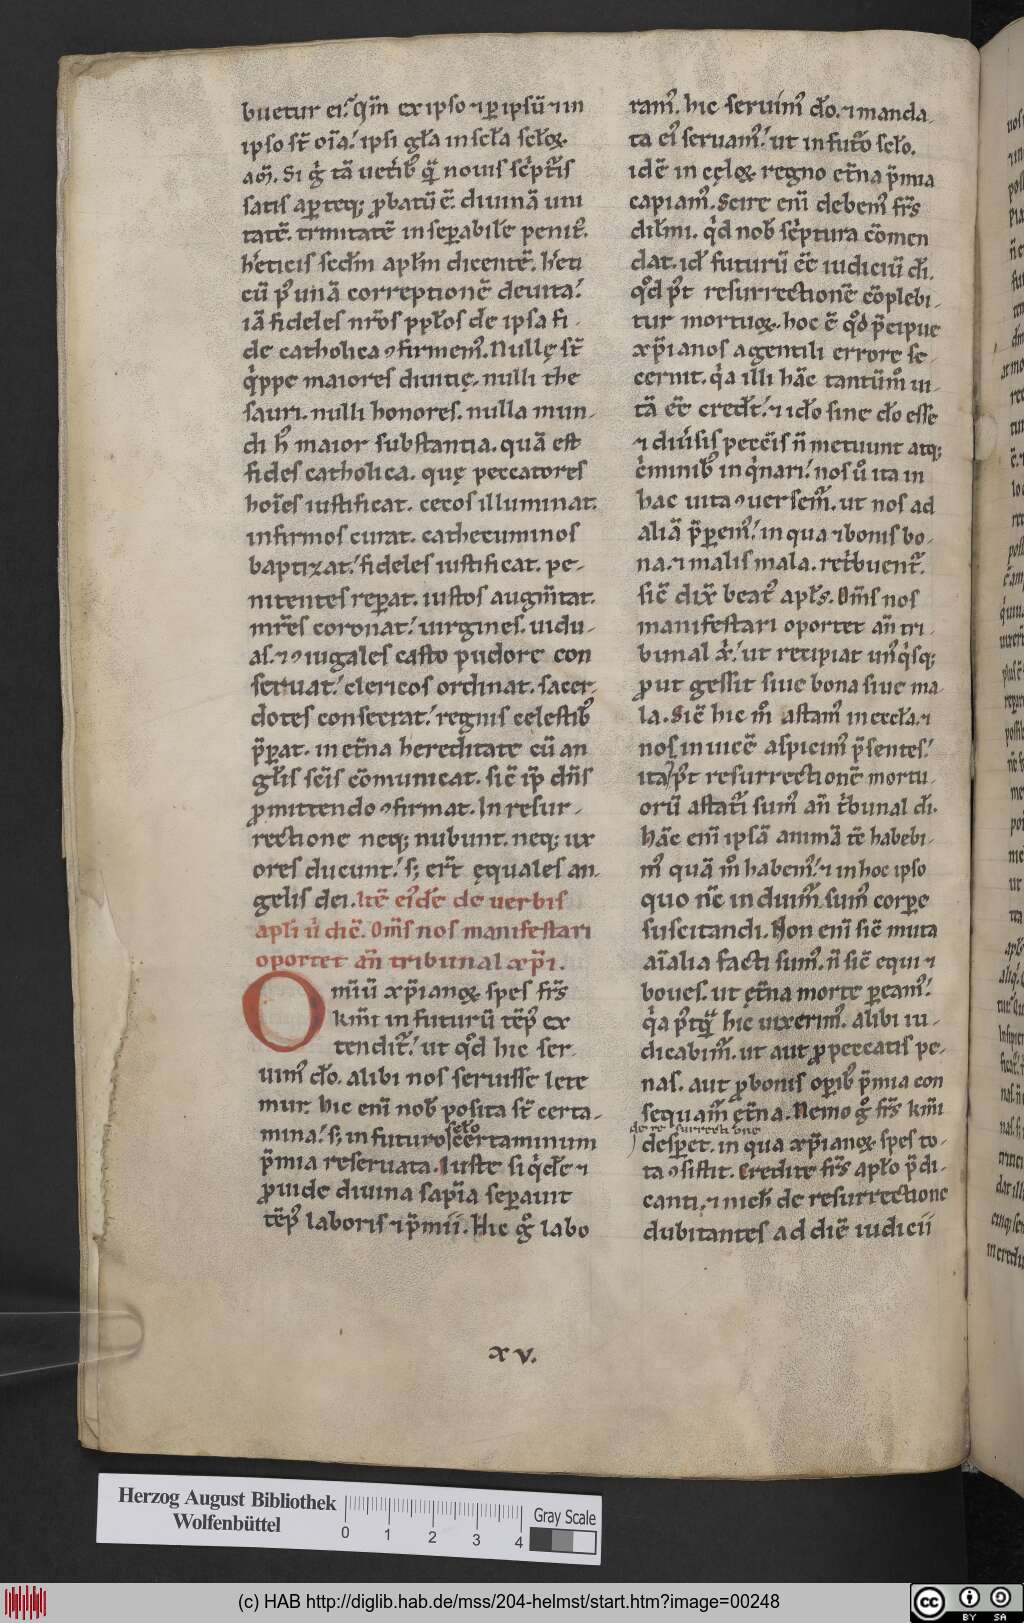 buetur ei. Qm̄ ex ipso ⁊ ꝑ ipsū ⁊ in
ipso st̄ oīa. ipsi gła in scła scłoꝝ.
am̄. Si g̊ tā uetib᷒ q̄ nouis scͥptis
satis aperteq; ꝓbatū ē. diuinā uni
tatē. trinitatē inseꝑabilē penit᷒.
h̓eticis scd̄m apłm dicentē. h̓eti
cū p᷒ unā correptionē deuita.
iā fideles nr̄os ppłos de ipsa fi-
de catholica ꝯfirmem᷒. Nullę st̄
qͥppe maiores diuitię. nulli the
sauri. nulli honores. nulla mun-
di h᷒ maior substantia. quā est
fides catholica. quę peccatores
hoīes iustificat. cecos illuminat.
infirmos curat. cathecuminos
baptizat. fideles iustificat. pe-
nitentes reꝑat. iustos augm̄tat.
mr̄es coronat. uirgines. uidu-
as. ⁊ ꝯiugales casto pudore con
seruat. clericos ordinat. sacer-
dotes consecrat. regnis celestib᷒
p̄ꝑat. in et̄na hereditate cū an
głis scīs cōmunicat. sic̄ ip̄ dn̄s
ꝓmittendo ꝯfirmat. In resur-
rectione neq; nubunt. neq; ux
ores ducunt. s; er̄t ęquales an-
gelis dei. Itē ei᷒dē de uerbis
apłi u dic̄. Om̄s nos manifestari
oportet an̄ tribunal xp̄i.
Omīū xp̄ianoꝝ spes fr̄s
km̄i in futurū tēp᷒ ex
tendit᷑. ut qd̊ hic ser-
uim᷒ dō. alibi nos seruisse lete
mur. Hic enī nob̄ posita st̄ certa-
mina. s; in futuro scło certaminum
p̄mia reseruata. Iuste siqͥdē ⁊
ꝓuide diuina sapīa seꝑauit
tēp᷒ laboris ⁊ p̄mii. Hic g̊ labo
ram᷒. hic seruim᷒ dō. ⁊ manda-
ta ei᷒ seruam᷒. ut in futō scło.
idē in cęloꝝ regno et̄na p̄mia
capiam᷒. Scire enī debem᷒ fr̄s
dil̄mi. qd̄ nob̄ scͥptura cōmen
dat. id̄ futurū ēē iudiciū dī.
qd̊ p᷒t resurrectionē cōplebi-
tur mortuoꝝ. hoc ē qd̊ p̄cipue
xp̄ianos a gentili errore se-
cernit. qͥa illi hāc tantūm̊ ui-
tā ēē credt̄. ⁊ idō sine dō esse
⁊ diu̓sis pecc̄is n̄ metuunt atq;
cͥminib᷒ inqͥnari. nos ů ita in
hac uita ꝯuersem᷑. ut nos ad
aliā p̄ꝑem᷒. in qua ⁊ bonis bo-
na. ⁊ malis mala. retͥbuent᷑.
sic̄ dix̄ beat᷒ apł̄s. Om̄s nos
manifestari oportet an̄ tri-
bunal x̄. ut recipiat un᷒qͥsq;
ꝓut gessit siue bona siue ma-
la. Sic̄ hic m̊ astam᷒ in eccła. ⁊
nos inuicē aspicim᷒ p̄sentes.
ita p᷒t resurrectionē mortu-
orū astati sum᷒ an̄ tͥbunal dī.
hāc enī ipsā animā tc̄ habebi-
m᷒ quā m̊ habem᷒. ⁊ in hoc ipso
quo nc̄ induim᷑ sum᷒ corꝑe
suscitandi. Non enī sic̄ muta
aīalia facti sum᷒. n̄ sic̄ equi ⁊
boues. ut ęt̄na morte ꝑeam᷒.
qͥa p᷒tq̄ hic uixerim᷒. alibi iu-
dicabim᷑. ut aut ꝓ peccatis pe-
nas. aut ꝓ bonis oꝑib᷒ p̄mia con
sequam᷑ et̄na. Nemo g̊ fr̄s km̄i
de resurrectione
desꝑet. in qua xp̄ianoꝝ spes to-
ta ꝯsistit. Credite fr̄s apło p̄di-
canti. ⁊ nich̄ de resurrectione
dubitantes ad diē iudicii
xv.
Herzog August Bibliothek
Wolfenbüttel
0 1 2 3 4
Gray Scale
(c) HAB http://diglib.hab.de/mss/204-helmst/start.htm?image=00248
cc BY SA